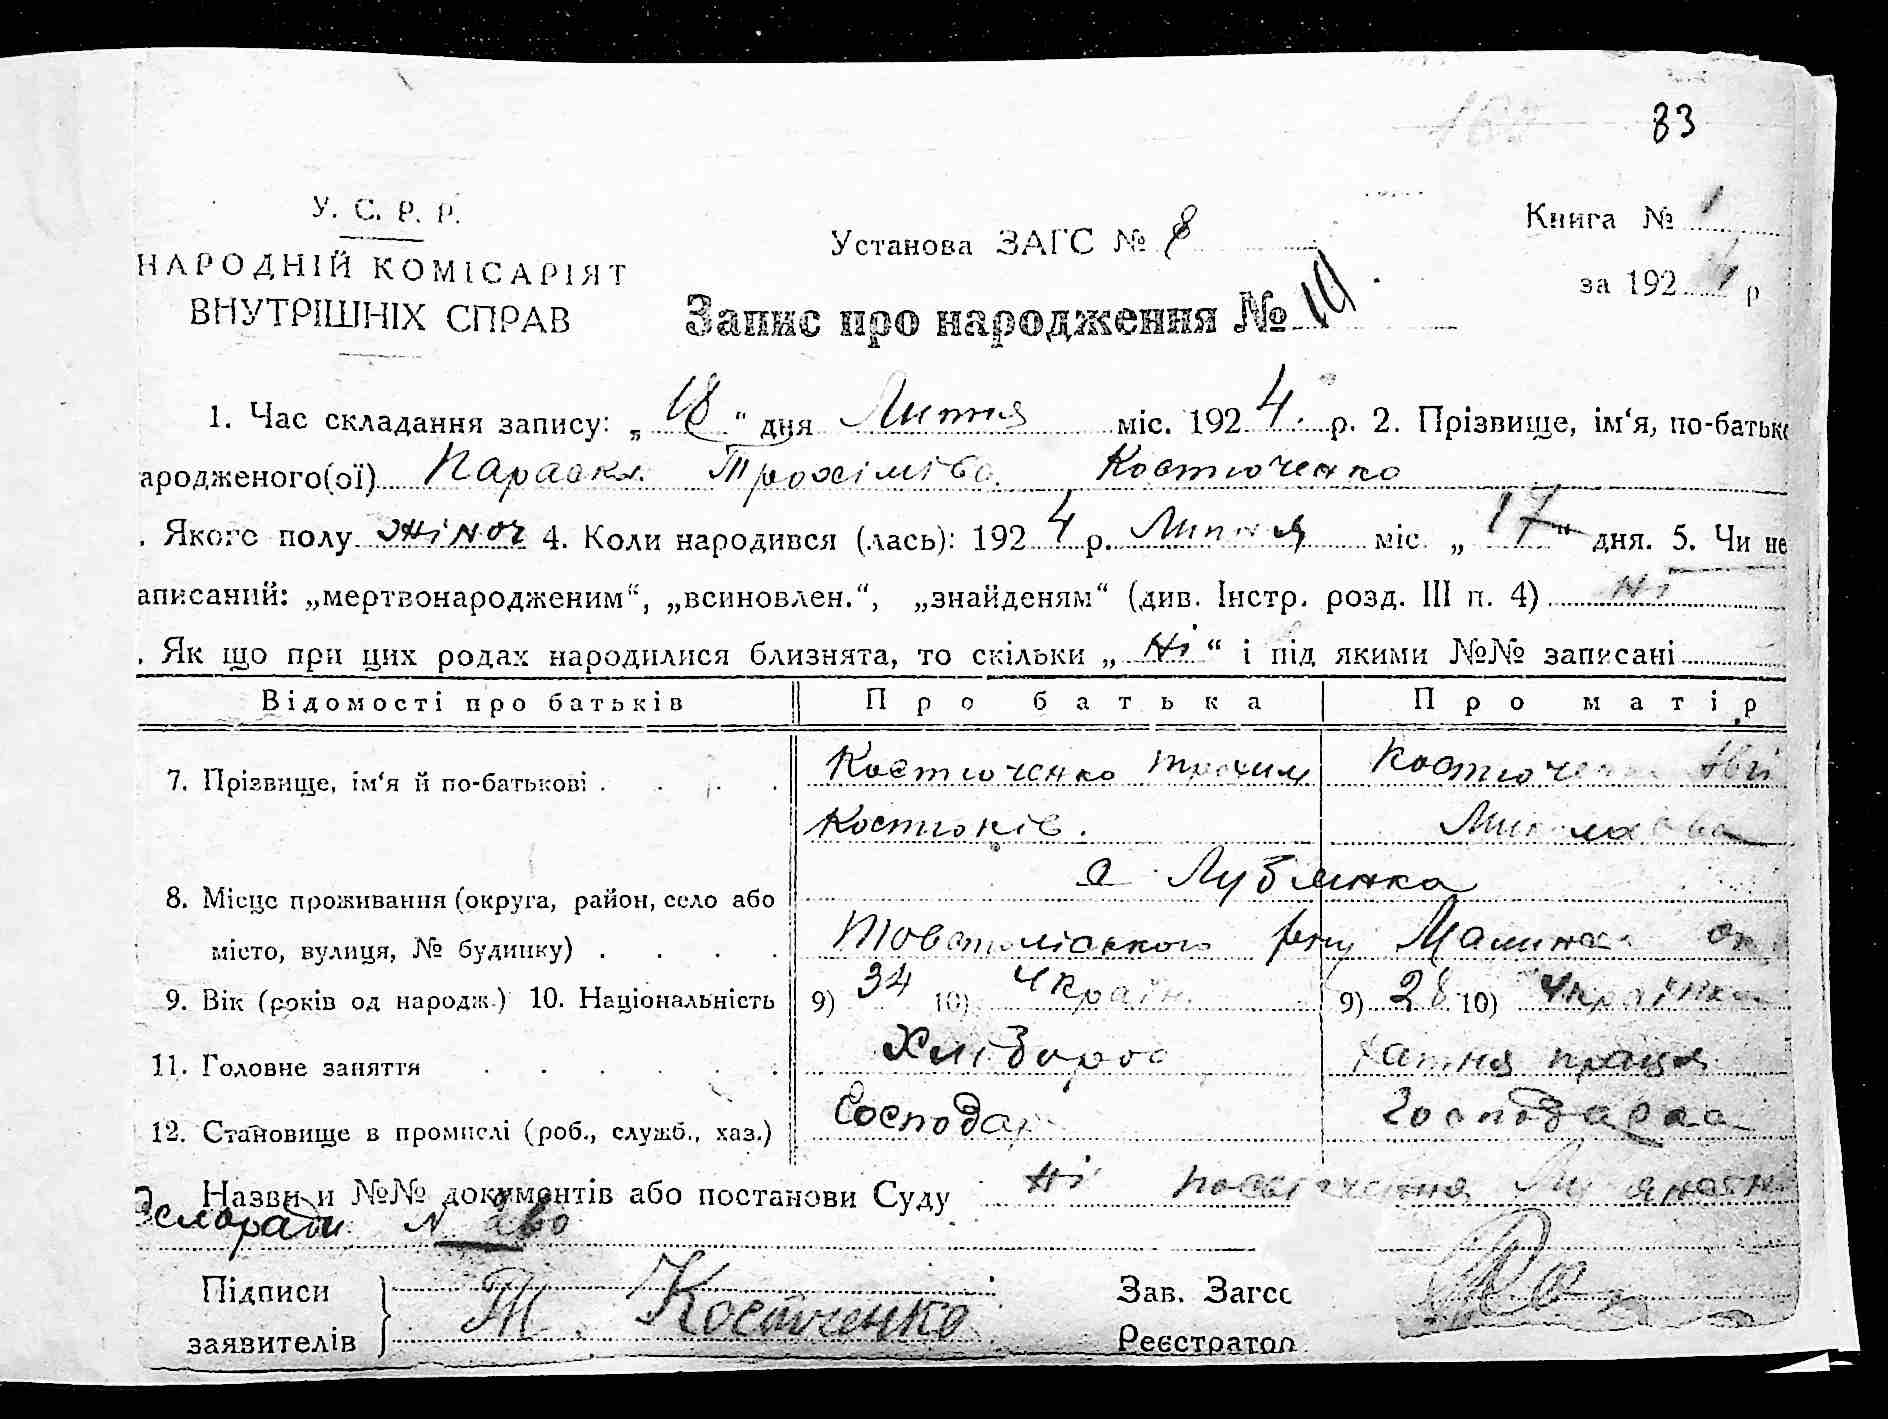 83
У. С. Р. Р.
НАРОДНІЙ КОМІСАРІЯТ
ВНУТРІШНІХ СПРАВ
Установа ЗАГС № 8
Книга № 1
за 192 4 р
Запис про народження №
1. Час складання запису: „ 18 “ дня Липня міс. 192 4 . р. 2. Прізвище, ім‘я, по-батьк
ародженого(ої) Параска Трохімівна Костюченко
. Якого полу жіноч 4. Коли народився (лась): 192 4 р. Липня міс. „ 17 “ дня. 5. Чи не
аписаний: „мертвонародженим“, „всиновлен.“, „знайденям“ (див. Інстр. розд. III п. 4) Ні
. Як що при цих родах народилися близнята, то скільки „ Ні “ і під якими №№ записані
Відомості про батьків Про батька Про матір
7. Прізвище, ім‘я й по-батькові . . . . Костюченко Трохим Костюченко
Костюків. Миколаєва
с. Лублянка
8. Місце проживання (округа, район, село або
місто, вулиця, № будинку) . . . . Малинськ
9. Вік (років од народж.) 10. Національність 9) 34 10) Україн. 9) 28 10) Українка
11. Головне заняття . . . . . . Хлібороб Хатня праця
12. Становище в промислі (роб., служб., хаз.) Господар Господарка
Назви и №№ документів або постанови Суду Ні посвідчення
Селоради N
Підписи
заявителів
Т. Костюченко
Зав. Загсс
Реєстратор